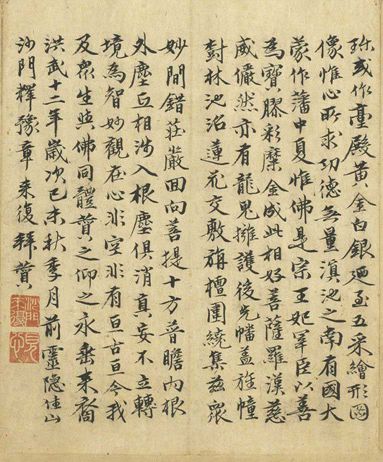 珎或作臺殿黃金白銀玉五采繪形圖
像惟心所求功德無量滇池之南有國大
蒙作藩中夏惟佛是宗王妃宰臣以善
為寶膠彩糜金成此相好菩薩羅漢慈
威儼然亦有龍鬼擁護後先幡蓋旌幢
樹林池沼蓮花交敷旃檀圍繞集茲眾
妙間錯莊嚴回向菩提十方普瞻內根
外塵互相涉入根塵俱消真妄不立轉
境為智妙觀在心非空非有亘古亘今我
及眾生與佛同體贊之仰之永垂來裔
洪武十二年歲次己未秋季月前靈隱住山
沙門釋豫章來復拜贊